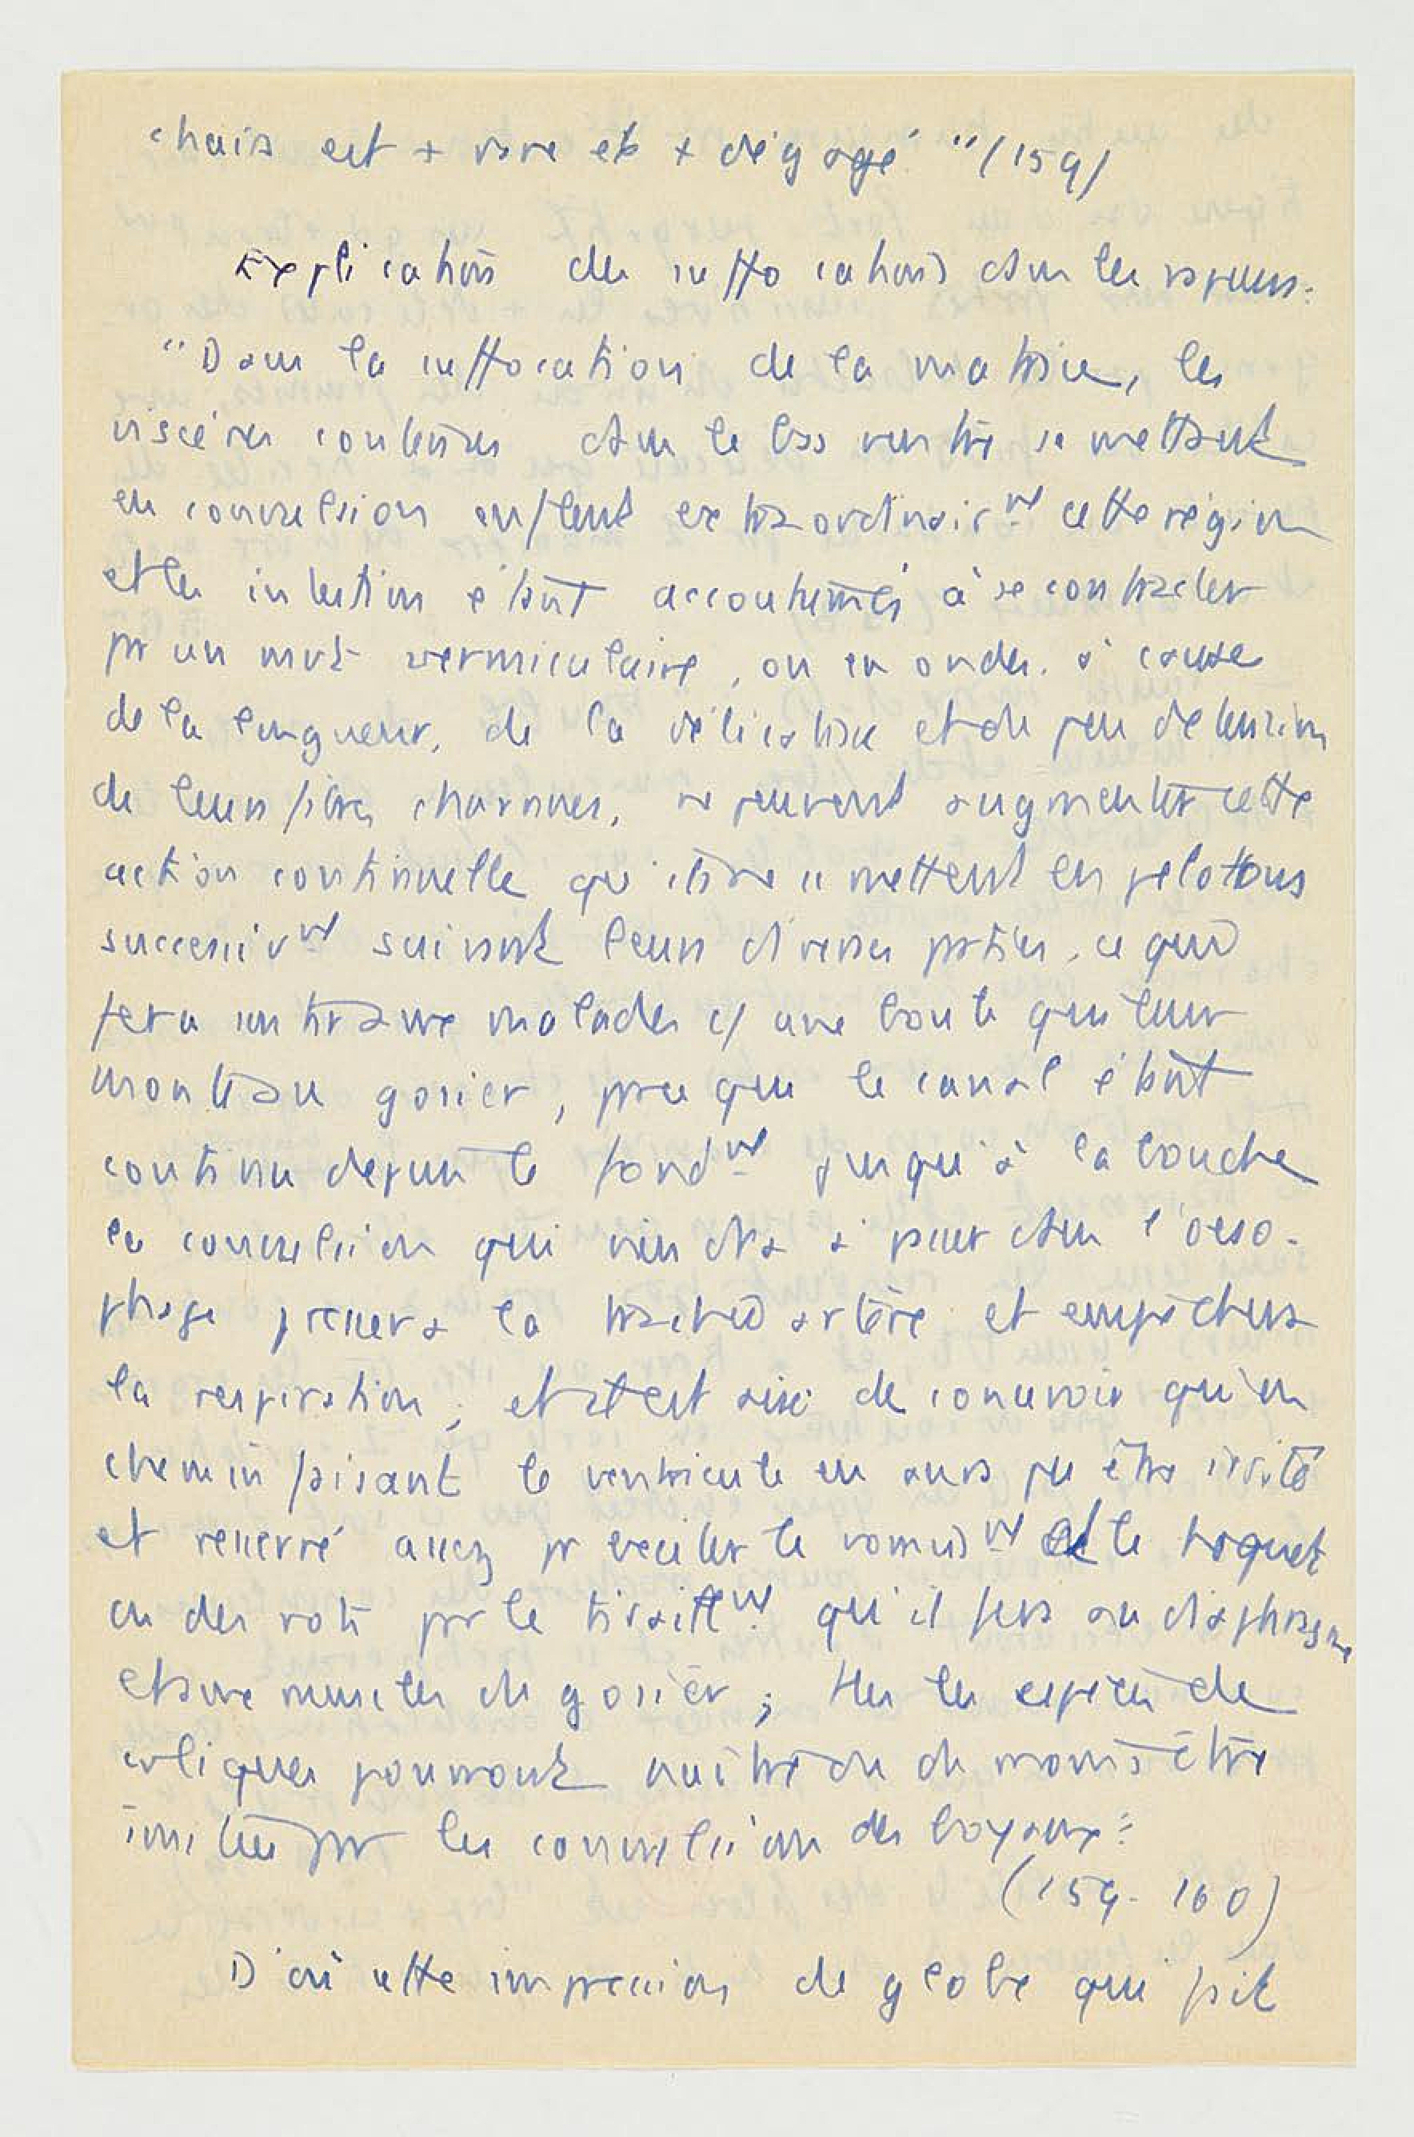 chair est + rare et + dégagé" (159)
Explication des suffocations dans les vapeurs.
"Dans la suffocation de la matrice, les
viscères contenus dans le bas ventre se mettant
en convulsion enflent extraordinairmt cette région
et les intestins étant accoutumés à se contracter
pr un mvt vermiculaire, ou en ondes. à cause
de la longueur, de la délicatesse et du peu de tension
de leurs fibres charnues, ne peuvent augmenter cette
action continuelle qu'ils ne se mettent en pelottons
successivmt suivant leurs diverses parties, ce qui
fera sentir aux malades c/ une boule qui leur
monte au gosier, parce que le canal étant
continu depuis le fondmt jusqu'à la bouche
la convulsion qui viendra à passer dans l'oeso-
phage pressera la trachée artère et empêchera
la respiration ; et il est aisé de concevoir qu'en
chemin faisant le ventricule en aura pu être irrité
et resserré assez pr exciter le vomissmt et le hoquet
ou des rots par le tiraillmt qu'il fera au diaphragme
et aux muscles du gosier ; ttes les espèces de
coliques pourront naître ou du moins être
imitées par les convulsions des boyaux".
(159-160)
D'où cette impression de globe qui fait